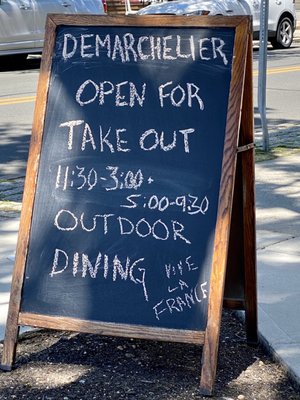 DEMARCHELIER
OPEN FOR
TAKE OUT
11:30-3:00
5:00-9:30
OUTDOOR
DINING
VIVE
LA
FRANCE